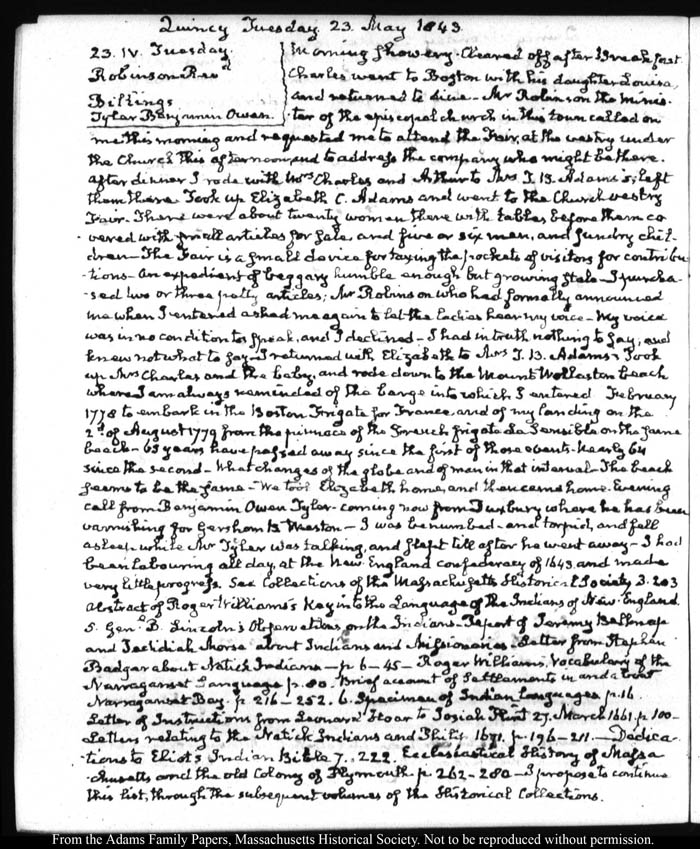 Quincy Tuesday. 23. May 1843.
23. IV. Tuesday.
Robinson Revd
Billings
Tylar Benjamin Owen.
Morning showery. Cleared off after Breakfast.
Charles went to Boston with his daughter Louisa,
and returned to dine. Mr Robinson the minis-
ter of the episcopal church in this town called on
me this morning and requested me to attend the Fair, at the vestry under
the Church this afternoon and to address the company who might be there.
After dinner I rode with Mrs Charles and Arthur to Mrs T. B. Adams's; left
them there. Took up Elizabeth C. Adams and went to the Church vestry
Fair. There were about twenty women there with tables before them co-
vered with small articles for sale, and five or six men, and sundry chil-
dren— The Fair is a small device for taxing the pockets of visitors for contribu
-tions— An expedient of beggary humble enough but growing stale— I purcha-
-sed two or three petty articles; Mr Robinson who had formally announced
me when I entered asked me again to let the Ladies hear my voice— My voice
was in no condition to speak, and I declined— I had in truth nothing to say, and
knew not what to say— I returned with Elizabeth to Mrs T. B. Adams's Took
up Mrs Charles and the baby, and rode down to the Mount Wollaston beach
where I am always reminded of the barge into which I entered February
1778 to embark in the Boston Frigate for France, and of my landing on the
2d of August 1779 from the pinnace of the French frigate La Sensible on the same
beach— 65 years have passed away since the first of those events. Nearly 64
since the second— What changes of the globe and of man in that interval— The beach
seems to be the same— We took Elizabeth home, and then came home. Evening
call from Benjamin Owen Tyler— coming now from Duxbury where he has been
varnishing for Gershom B. Weston— I was benumbed— and torpid, and fell
asleep while Mr Tyler was talking, and slept till after he went away— I had
been labouring all day, at the New England confederacy of 1643, and made
very little progress. See Collections of the Massachusetts Historical Society 3. 203
Abstract of Roger Williams's Key into the Language of the Indians of New-England.
5. Genl B. Lincoln's Observations on the Indians— Report of Jeremy Belknap
and Jedidiah Morse about Indians and Missionaries— Letter from Stephen
Badger about Natick Indians— p. 6—45— Roger Williams, Vocabulary of the
Narraganset Language p. 80. Brief account of Settlements in and about
Narraganset Bay. p. 216—252. 6. Specimen of Indian Languages p. 16.
Letter of Instructions from Leonard Hoar to Josiah Flint 27. March 1661. p. 100—
Letters relating to the Natick Indians and Philip 1671. p. 196—211.— Dedica
-tions to Eliot's Indian Bible 7.. 222. Ecclesiastical History of Massa
-chusetts and the old Colony of Plymouth p. 262—280— I propose to continue
this list, through the subsequent volumes of the Historical Collections.
From the Adams Family Papers, Massachusetts Historical Society. Not to be reproduced without permission.